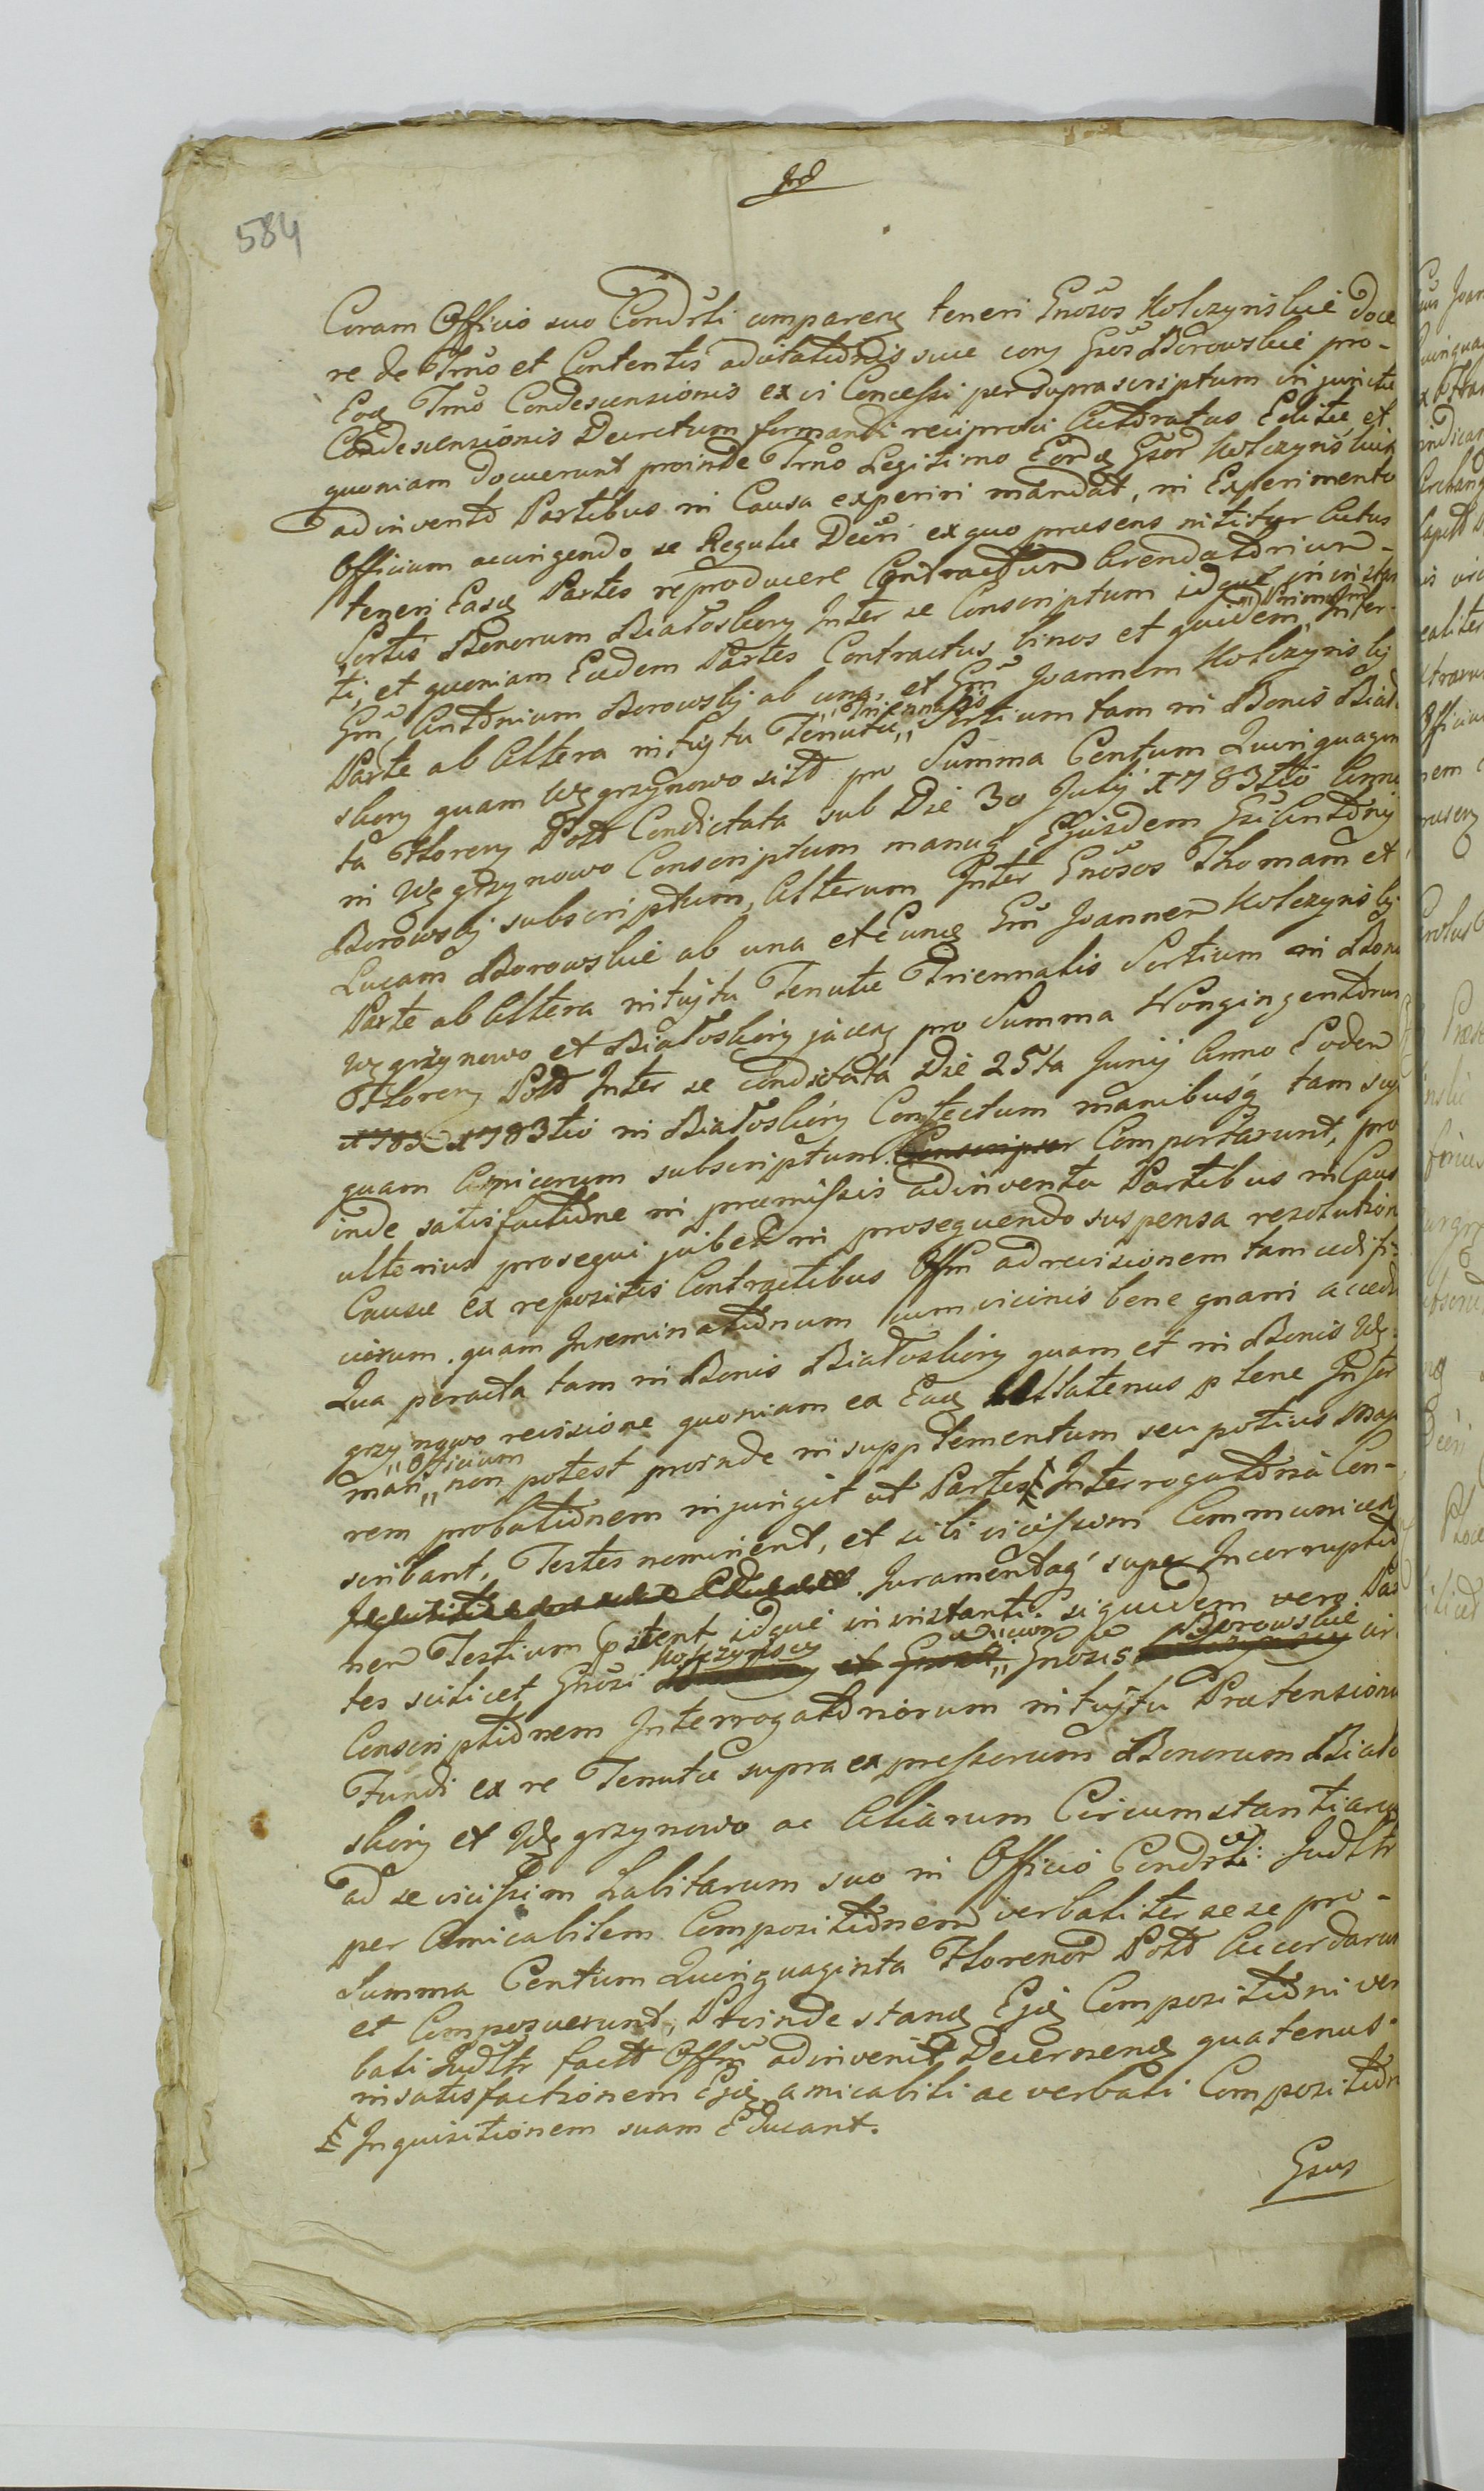 584
Coram Officio suo Condrli comparen teneri Gnosos Kolczynskie doce
re de Trno et Contentis adcitationis suae con Gsos Borowskie pro-
Eoq Trno Condescensionis ex vi Concessi per suprascriptum in juncta
Condescensionis Decretum formandi reciproci Actoratus Editae, et
quoniam docuerunt proinde Trno Legitimo Eord Gsor Kolczynskich
adinvento Partibus in Causa experiri mandat, in Experimento
Officium accingendo se Regulae Decri ex quo praesens nititur Actus
teneri Easq Partes reproducere Contractum Arendatorium
Sortis Bonorum Białoskory Inter se Conscriptum idque in instan
ti, et quoniam Eaedem Partes Contractus binos et quidem "Primum Inter
Gm Antonium Borowskj ab una, et Gm Joannem Kolczynskj
Parte ab Altera intuitu Tenutae "Triennalis" Sortium tam in Bonis Biało
skory quam Węgrzynowo sito pro Summa Centum Quinquagin
ta Floren Pold Condictata sub Die 30 Julij 1783tio Anno
in Węgrzynowo Conscriptum manuq Ejusdem Gsi Antonij
Borowskj subscriptum, Alterum Inter Gnosos Thomam et
Lucam Borowskie ab una et Eunq Gm Joannem Kolczynskj
Parte ab Altera intuitu Tenutae Triennalis Sortium in Bonis
Węgrzynowo et Białoskory jacen pro Summa Nongingentorum
Floren Pold Inter se condictata Die 25ta Junij Anno Eodem
1783 1783tio in Białoskory Confectum manibusq tam suis
quam Amicorum subscriptum Conscriptum Comportarunt, pro
inde satisfactione in praemissis adinventa Partibus in Causa
ulterius prosequi jubet in prosequendo suspensa resolutione
Causae ex repositis Contractibus Offm ad revisionem tam aedifi-
ciorum quam Inseminationum cum vicinis bene gnari accedit
Qua peracta tam in Bonis Białoskory quam et in Bonis Wę-
grzynowo revisione quoniam ex Eaq allatenus plene Infor
mari "Officium" non potest proinde in supplementum seu potius majo
rem probationem injungit ut Partes Interrogatoria Con-
scribant, Testes nominent, et sibi vicissim Communicent
Juramentaq super Incorruptio
nem Testium pstent idque in instanti. siquidem vero Par
tes scilicet Gnosi Kolczynscy et "cum" Gnosis Borowskie cir
Conscriptionem Interrogatoriorum intuitu Praetensionum
Fundi ex re Tenutae supra expressorum Bonorum Biało
skory et Węgrzynowo ac Aliarum Circumstantiarum
ad se vicissim habitarum suo in Officio Condrli Judltr
per Amicabilem Compositionem verbaliter sese pro-
Summa Centum Quinquaginta Florenor Pold Accordarunt
et Composuerunt, Proinde stanq Ejq Compositioni ver
bali Judltr fact Offm adinvenit Decernenq quatenus
in satisfactionem Ejq amicabili ac verbali Composition
Inquisitionem suam Educant.
Gsus